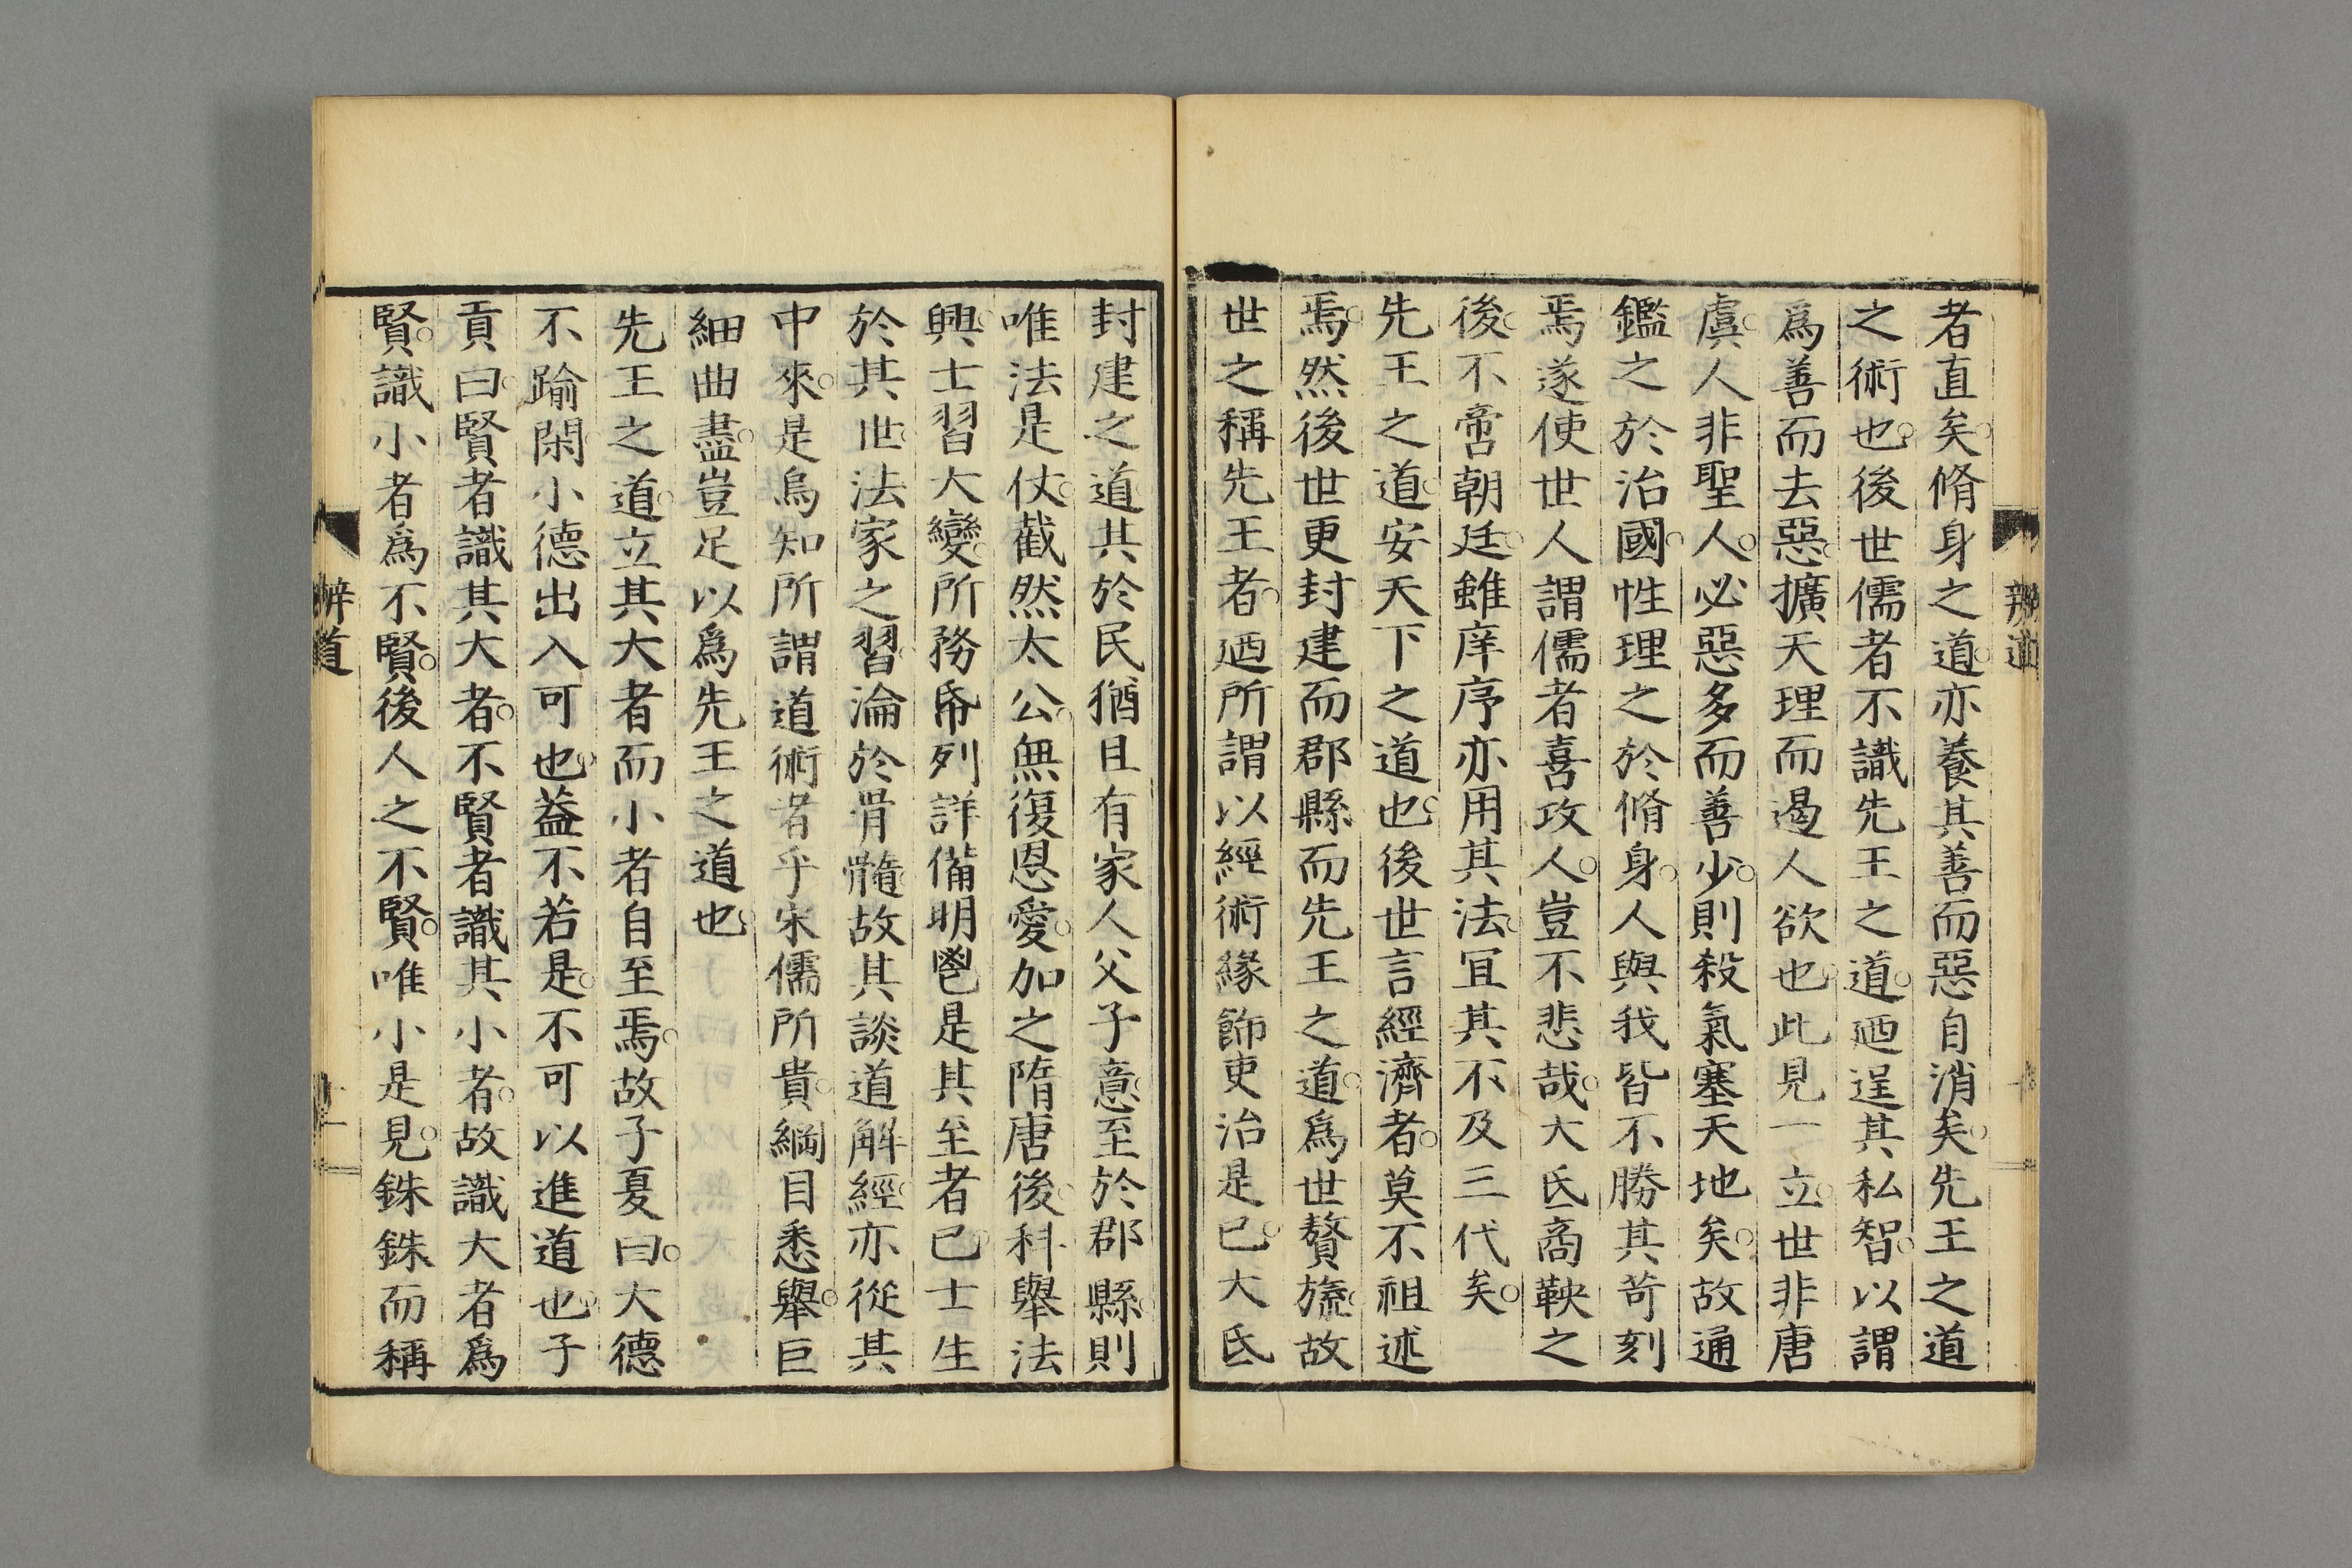 者直矣脩身之道亦養其善而惡自消矣先王之道
之術也後世儒者不識先王之道迺逞其私智以謂
爲善而去惡擴天理而遏人欲也此見一立世非唐
虞人非聖人必惡多而善少則殺氣塞天地矣故通
鑑之於治國性理之於脩身人與我皆不勝其苛刻
焉遂使世人謂儒者喜攻人豈不悲哉大氐商鞅之
後不啻朝廷雖庠序亦用其法冝其不及三代矣
先王之道安天下之道也後世言經濟者莫不祖述
焉然後世更封建而郡縣而先王之道爲世贅旒故
世之稱先王者迺所謂以經術緣飾吏治是已大氐
辨道
封建之道其於民猶且有家人父子意至於郡縣則
唯法是仗截然太公無復恩愛加之隋唐後科舉法
興士習大變所務帋列詳備明鬯是其至者已士生
於其世法家之習淪於骨髓故其談道解經亦從其
中來是烏知所謂道術者乎宋儒所貴綱目悉舉巨
細曲盡豈足以爲先王之道也
先王之道立其大者而小者自至焉故子夏曰大德
不踰閑小德出入可也蓋不若是不可以進道也子
貢曰賢者識其大者不賢者識其小者故識大者爲
賢識小者爲不賢後人之不賢唯小是見銖銖而稱
辨道